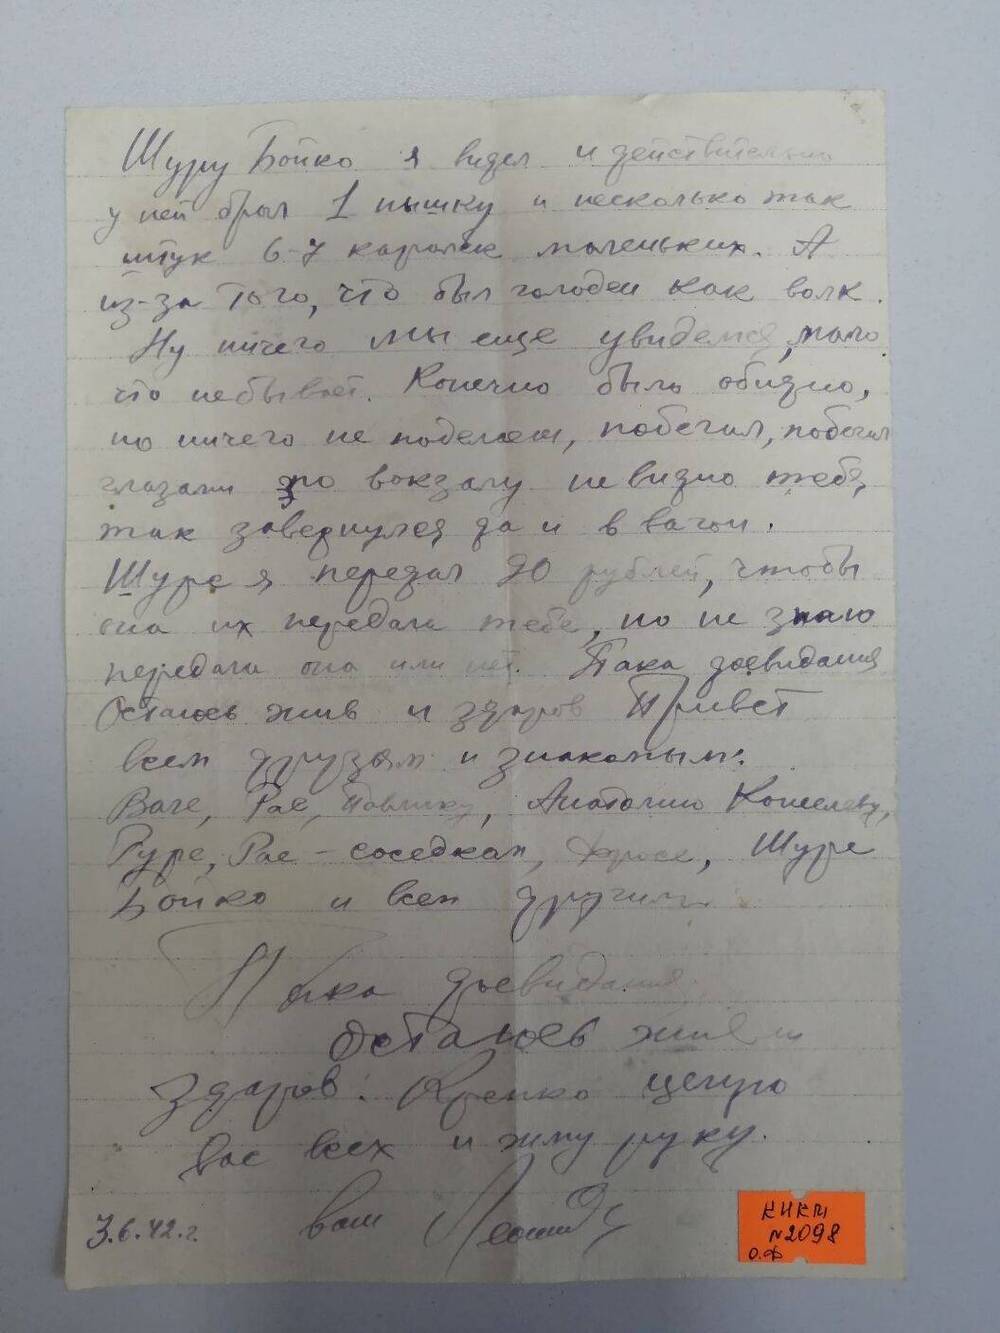 Шуру Бойко я видел и действительно
у ней брал 1 пышку и несколько так
штук 6-7 маленьких. А
из-за того, что был голоден как волк.
Ну ничего мы еще увидемся, мало
что небывает. Конечно было обидно,
но ничего не поделаеш, побегал, побегал
глазами по вокзалу не видно тебя,
так завернулся да и в вагон.
Шуре я передал 90 рублей, чтобы
она их передала тебе, но не знаю
передала она или нет. Пака досвидания
Остаюсь жив и здаров Привет
всем друзям и знакомым:
Вале, Рае, Павлику, Анатолию Кошелеву,
Рае - соседкам, Фросе, Шуре
Бойко и всем другим
Пока досвидания
остаюсь жив и
здаров. Крепко целую
вас всех и жму руку.
ваш Леонид
3.6.42.г.
КНКМ
№2098
о.ф